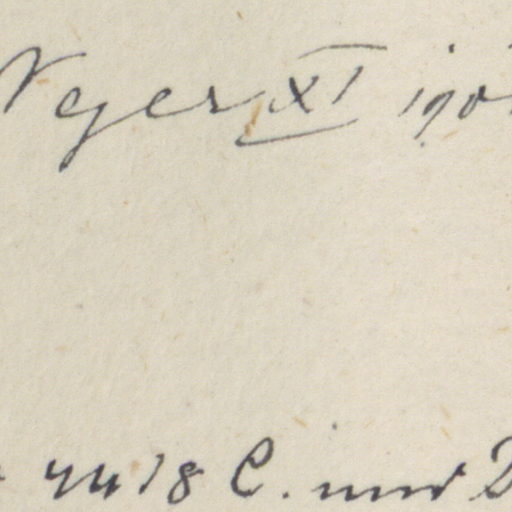 Neger XI 190
4418 C. und D